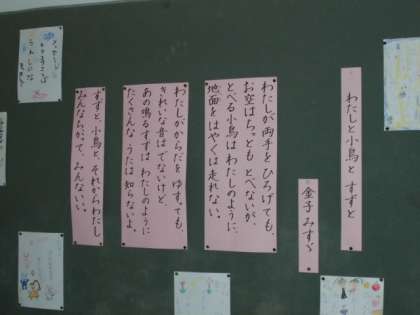 わたしと小鳥と すずと
金子 みすゞ
わたしが両手を ひろげても、
お空はちっとも とべないが、
とべる小鳥は わたしのように、
地面を はやくは 走れない。
わたしがからだを ゆすっても、
きれいな音は でないけど、
あの鳴るすずは わたしのように
たくさんな うたは 知らないよ。
すずと、小鳥と、それからわたし、
みんなちがって、みんないい。